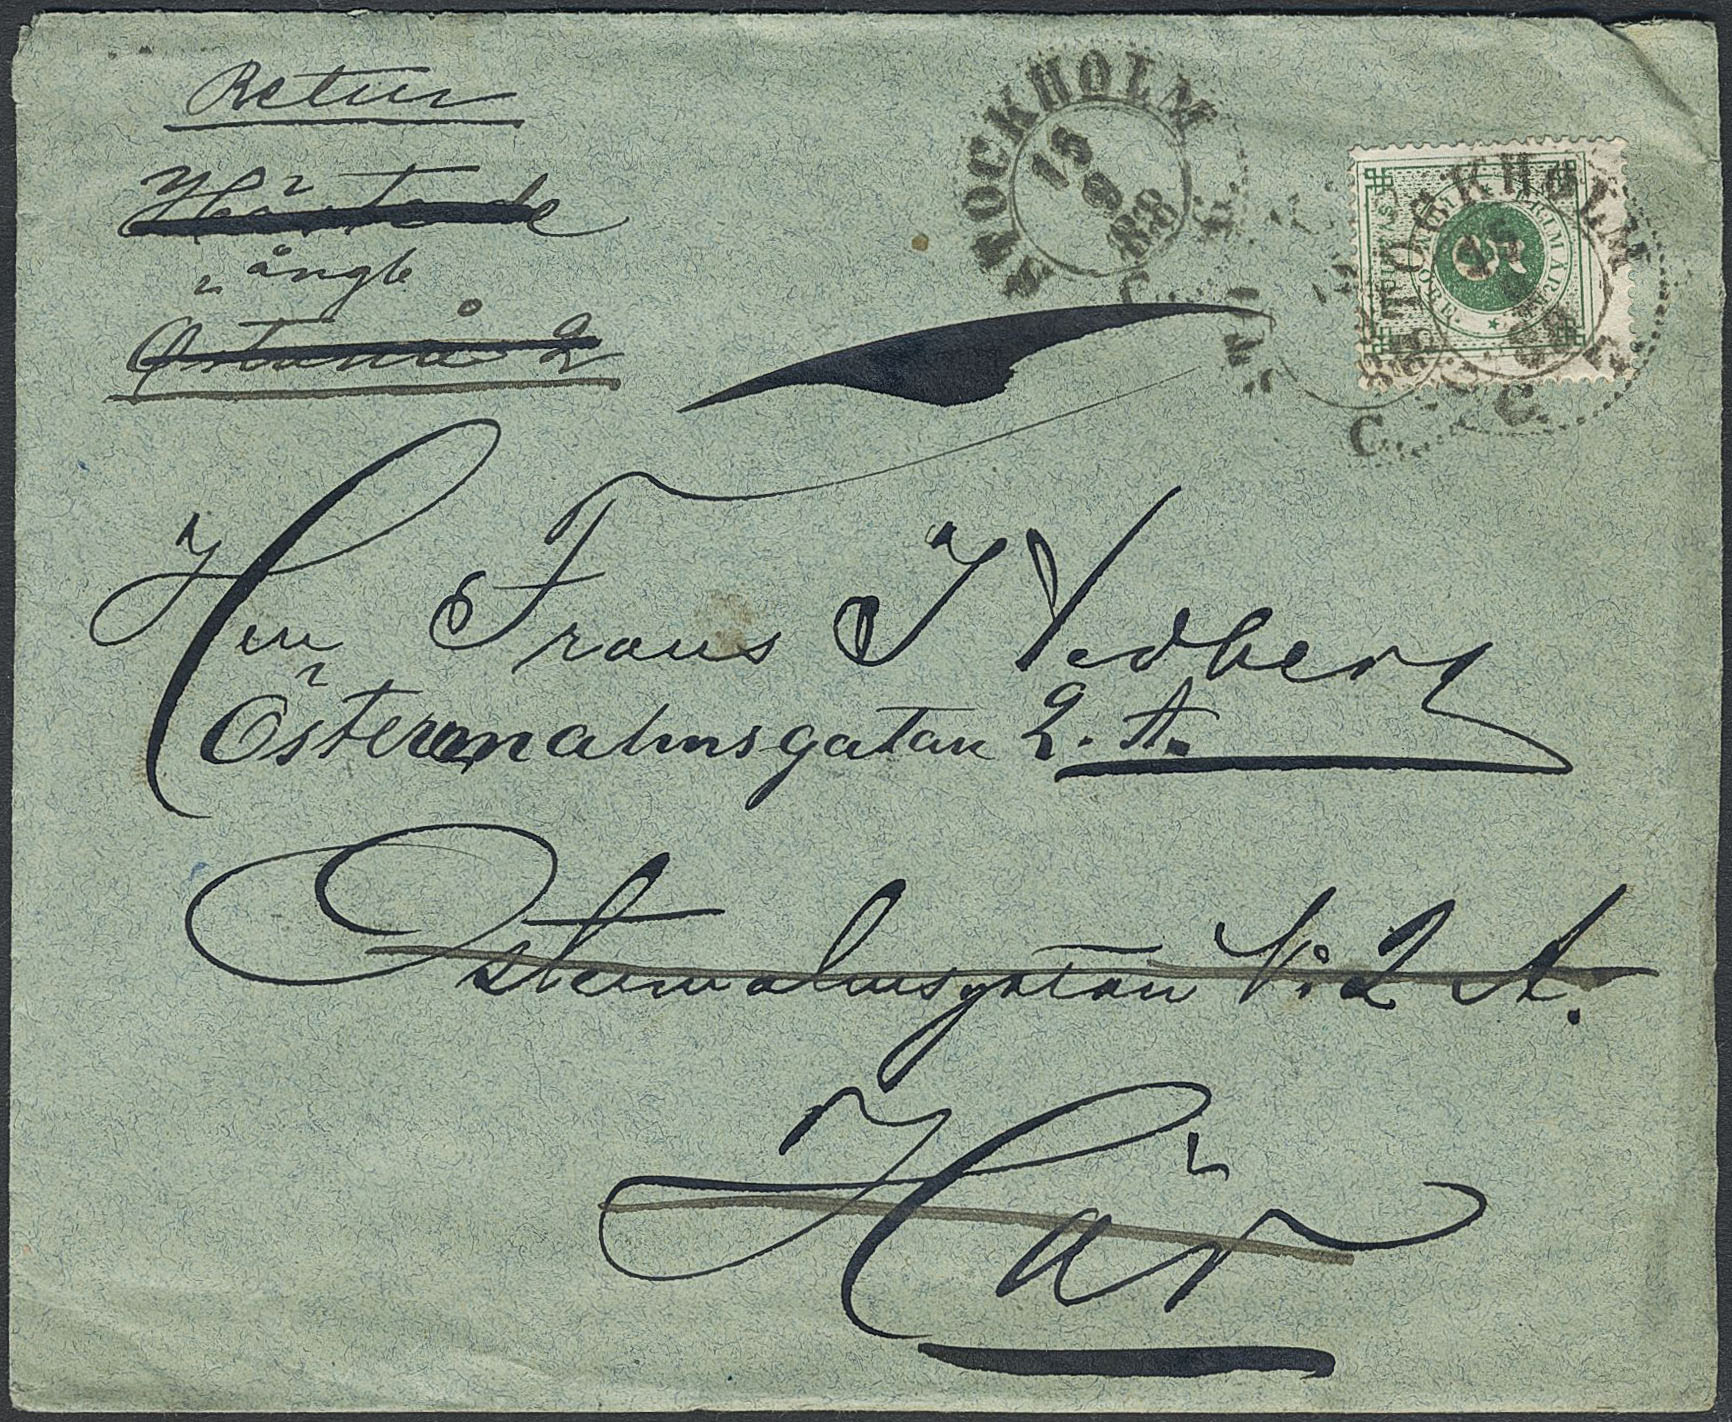 Retur
ångb
Östanå 2
STOCKHOLM
15
9
88
C.
STOCKHOLM
C.
C.
FRIMÄRKE
5
Herr Frans J Vedberg
Östermalmsgatan 2. A.
Östermalmsgatan No 2 A.
Här